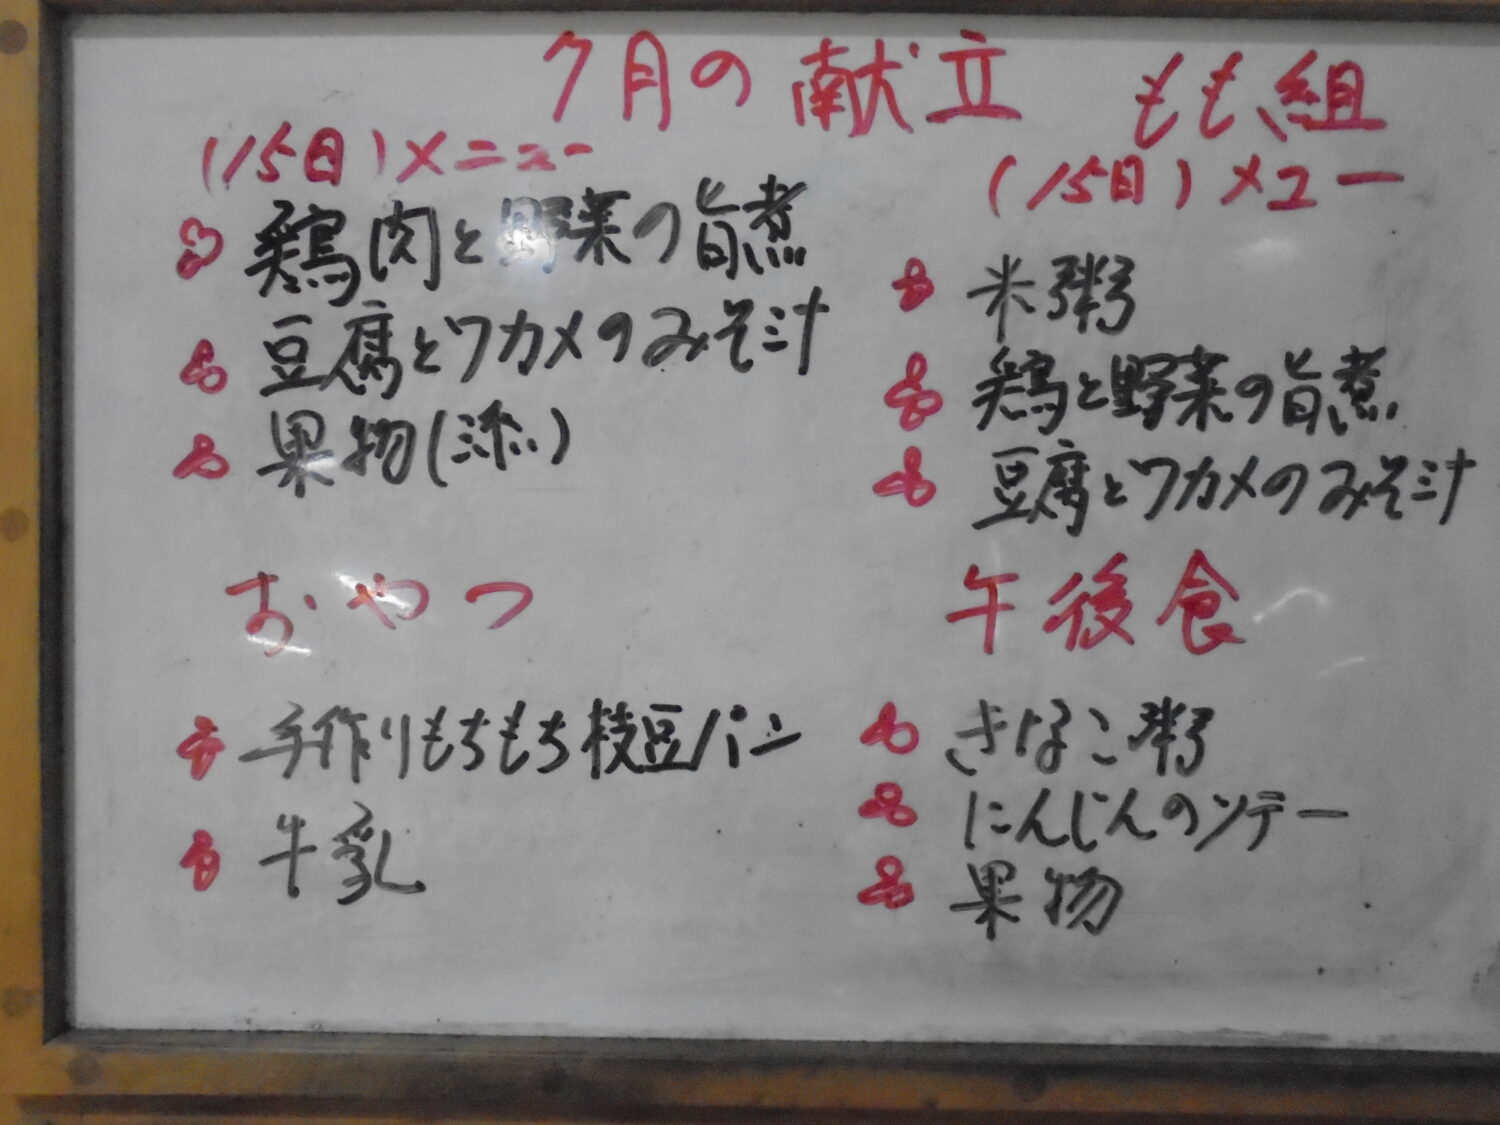 7月の献立 もも組
(15日)メニュー
鶏肉と野菜の旨煮
豆腐とワカメのみそ汁
果物(添)
おやつ
手作りもちもち枝豆パン
牛乳
(15日)メュー
米粥
鶏と野菜の旨煮
豆腐とワカメのみそ汁
午後食
きなこ粥
にんじんのソテー
果物